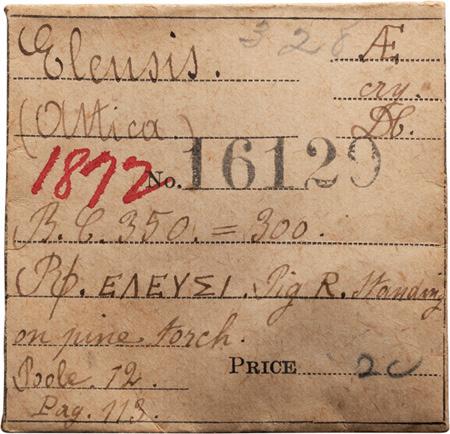 Eleusis. 328 Æ
cry.
(Attica.)
1872 No. 16129
B.C. 350. = 300.
ΕΛΕΥΣΙ. Pig R. standing
on pine torch.
Poole. 12. PRICE 20
Pag. 113.